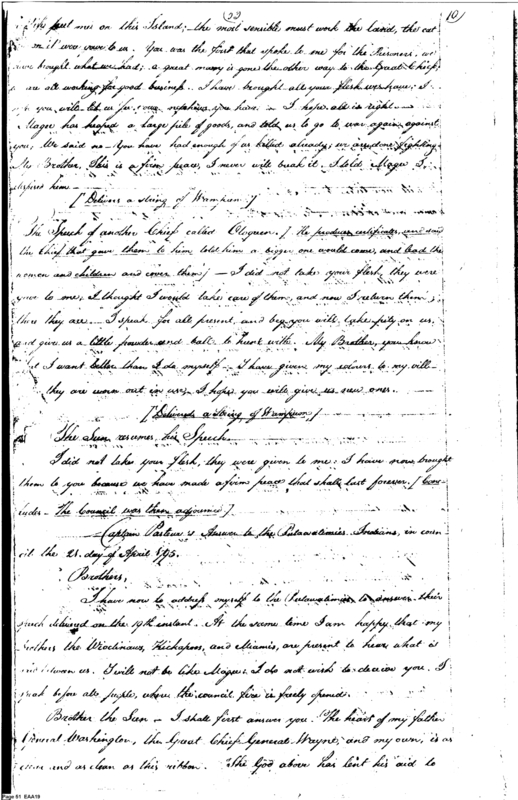 22
10
put me on this Island; the most sensible must work the land, the cat
on it was gave to us. You was the first that spoke to me for the Prisoners, we
have brought what we had; a great many is gone the other way to the Great Chief,
are all working for good business. I have brought all your flesh we have; I
you will let us for now you hear. I hope all is right
Magee has heaped a large pile of goods, and told us to go to war again against
you, We said no – You have had enough of us killed already; we are done fighting
My Brother, This is a firm peace, I never will break it. I told Magee I
despised him –
[Delivers a string of Wampum]
The Speech of another Chief called [He produces certificates, and said
the Chief that gave them to him told him a bigger one would come, and lead the
women and children and cover them] – I did not take your flesh, they were
gave to me, I thought I would take care of them, and now I return them;
there they are – I speak for all present, and beg you will take pity on us,
and give us a little powder and ball to hunt with. My Brother, you know
I want better than I do myself – I have given my colours to my vill-
they are worn out in use, I hope you will give us new ones.
[Delivered a string of Wampum]
The Sun resumes his Speech
I did not take your flesh, they were given to me: I have now brought
them to you because we have made a firm peace that shall last forever. [Con-
cludes – The Council was then adjourned]
Captain Pasteur's Answer to the Putawatimies Indians, in coun-
cil the 21. day of April 1795.
Brothers,
I have now to address myself to the Putawatimies to answer their
speech delivered on the 19th instant. At the same time I am happy that my
brothers the Kickapoos, and Miamis, are present to hear what is
said between us. I will not be like Magee: I do not wish to deceive you. I
speak before all people, where the council fire is freely opened.
Brother the Sun – I shall first answer you. The heart of my father
General Washington, the Great Chief General Wayne, and my own, is as
clear and as clean as this ribbon. The God above has lent his aid to
Page 51 EAA19